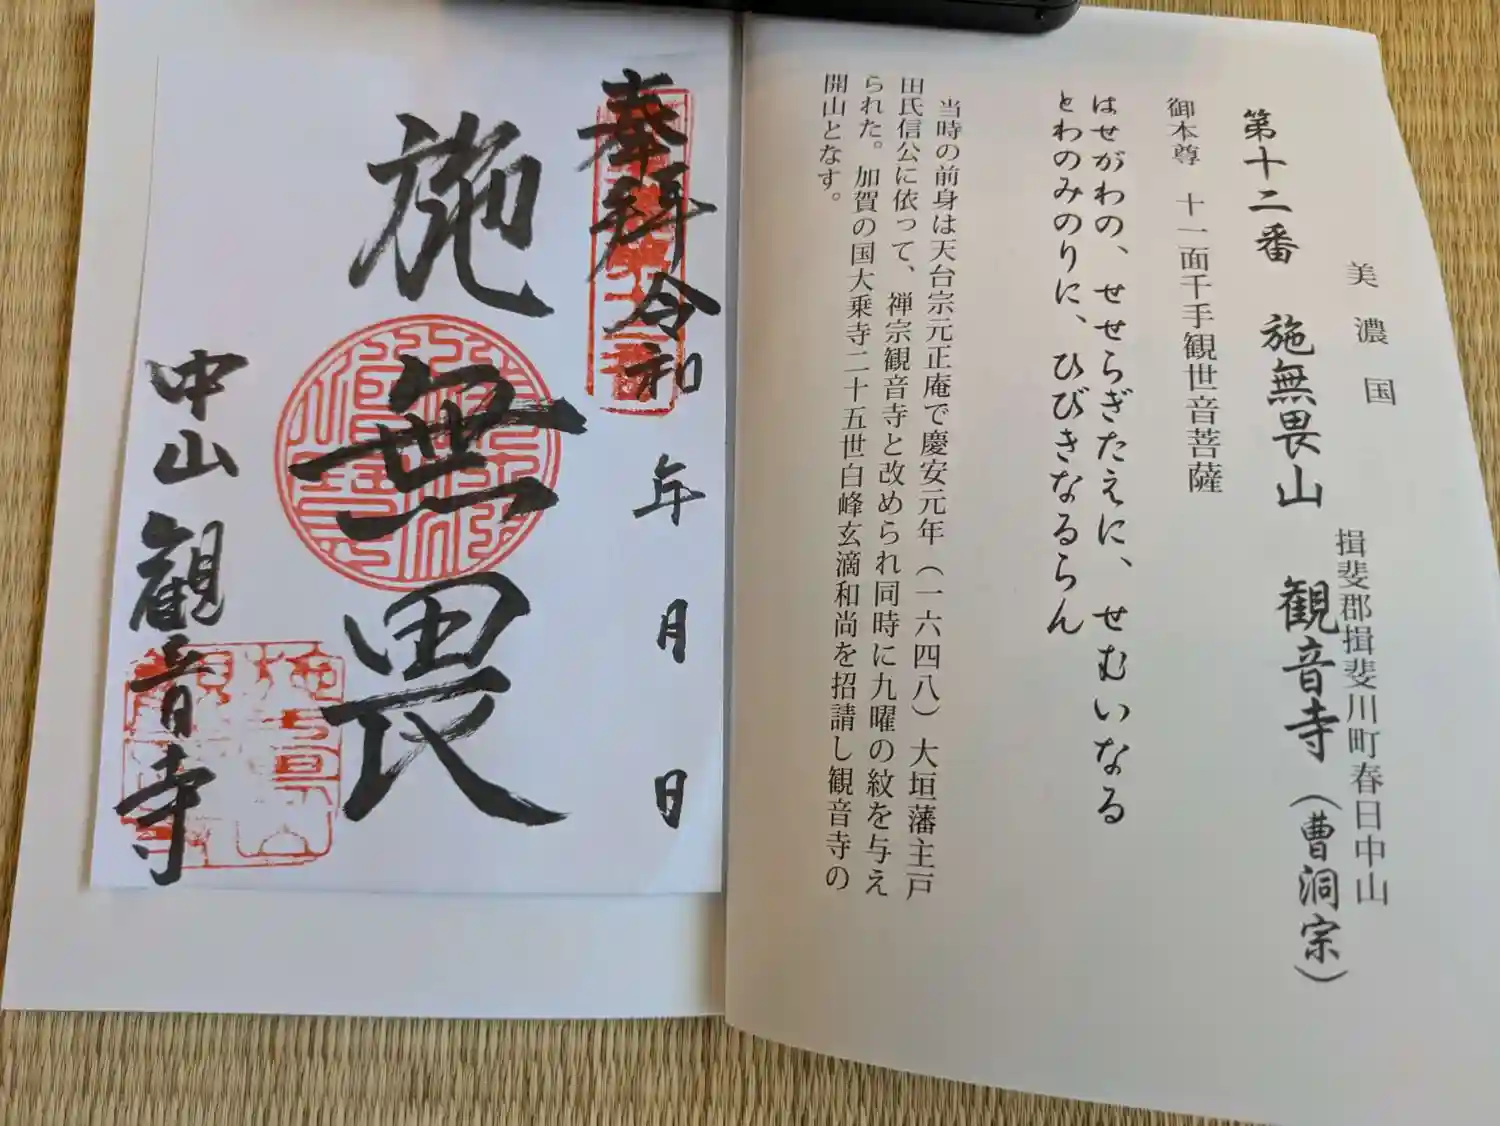 美濃国
揖斐郡揖斐川町春日中山
第十二番 施無畏山 観音寺(曹洞宗)
御本尊 十一面千手観世音菩薩
はせがわの、せせらぎたえに、せむいなる
とわのみのりに、ひびきなるらん
当時の前身は天台宗元正庵で慶安元年(一六四八)大垣藩主戸
田氏信公に依って、禅宗観音寺と改められ同時に九曜の紋を与え
られた。加賀の国大乗寺二十五世白峰玄滴和尚を招請し観音寺の
開山となす。
奉拝 令和 年 月 日
施無畏
中山 観音寺